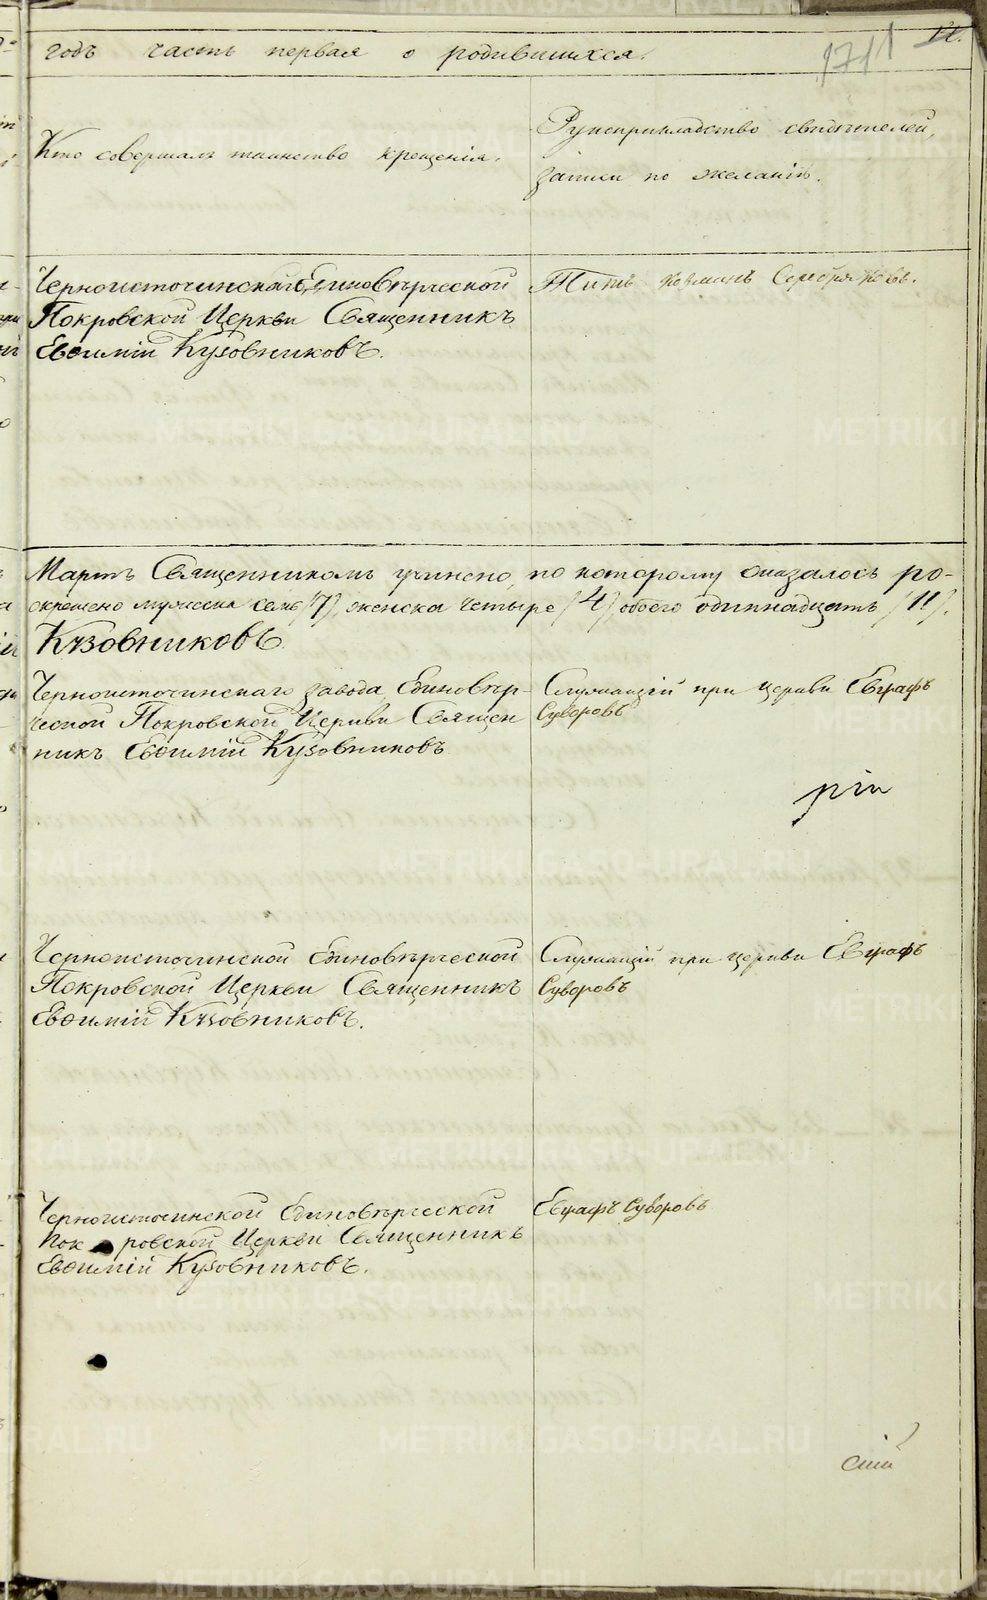 годъ часть первая о родившихся.
1711
12.
Кто совершалъ таинство крещенія.
Рукоприкладство свидѣтелей,
записи по желанію.
Черноисточинской Единовѣрческой
Покровской Церкви Священникъ
Евѳимій Кузовниковъ.
Титъ Серебряковъ.
Мартъ Священникомъ учинено, по которому оказалось ро-
окрещено мужеска семь /7/, женска четыре /4/ обоего одиннадцать /11/.
Кузовниковъ
Черноисточинскаго завода Единовѣр-
ческой Покровской Церкви Священ
никъ Евѳимій Кузовниковъ
Служащій при церкви Евграфъ
Суворовъ
Черноисточинской Единовѣрческой
Покровской Церкви Священникъ
Евѳимій Кузовниковъ.
Служащій при церкви Евграфъ
Суворовъ
Черноисточинской Единовѣрческой
Пок ровской Церкви Священникъ
Евѳимій Кузовниковъ.
Евграфъ Суворовъ
METRIKI.GASO-URAL.RU